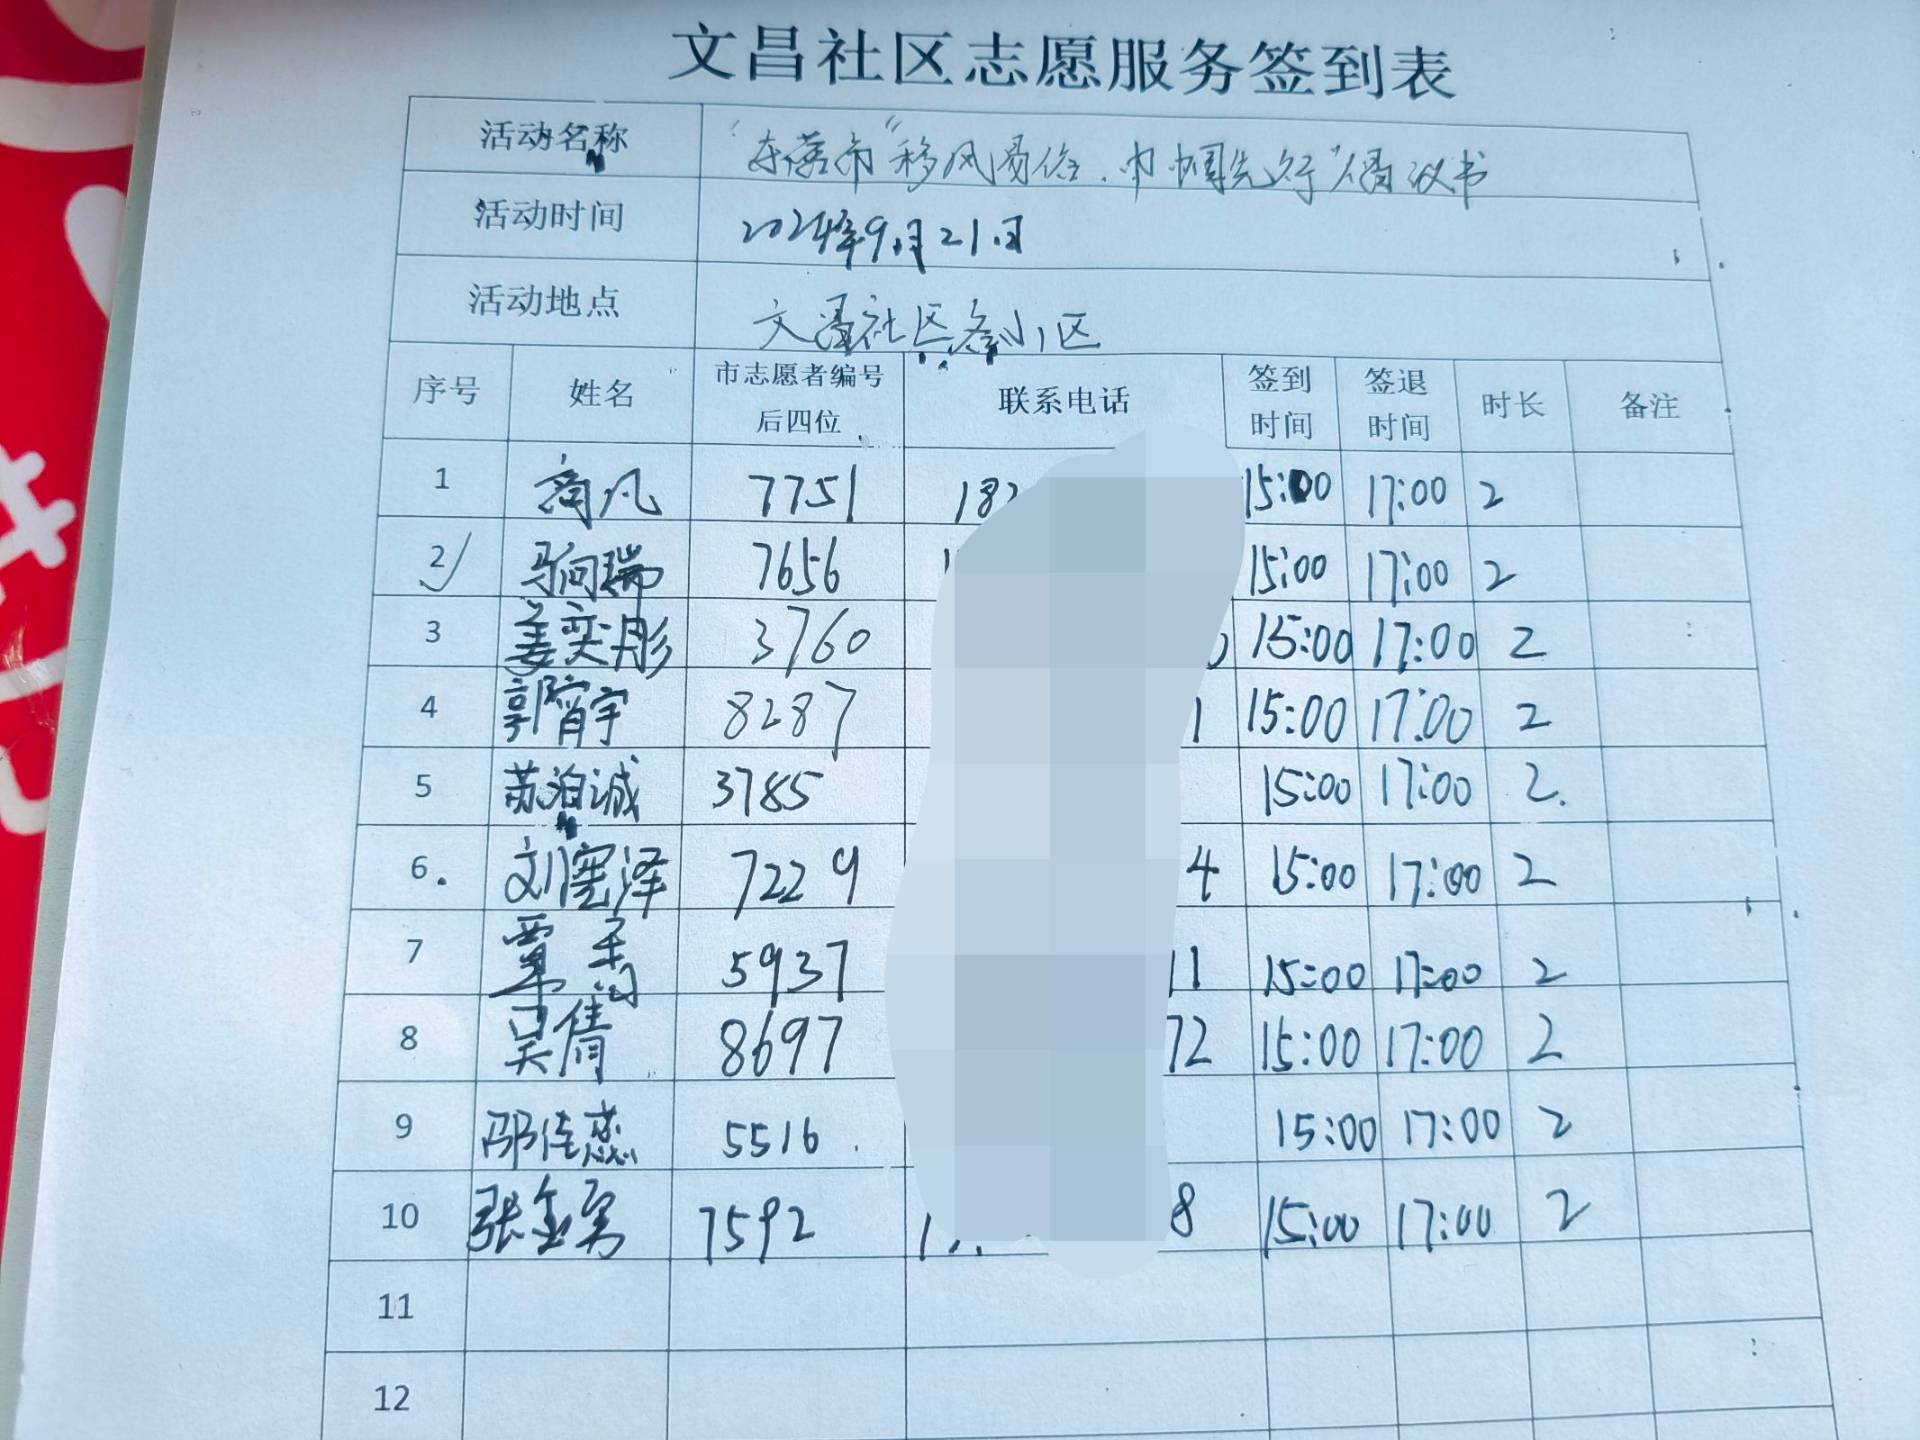 文昌社区志愿服务签到表
活动名称 "东营市"移风易俗、巾帼先行"倡议书
活动时间 2024年9月21日
活动地点 文昌社区各小区
序号 姓名 市志愿者编号后四位 联系电话 签到时间 签退时间 时长 备注
1 商凡 7751 182 15:00 17:00 2
2 马向瑞 7656 15:00 17:00 2
3 姜奕彤 3760 15:00 17:00 2
4 郭宵宇 8287 1 15:00 17:00 2
5 苏泊诚 3785 15:00 17:00 2.
6. 刘宪泽 7229 4 15:00 17:00 2
7 覃 5937 11 15:00 17:00 2
8 吴倩 8697 72 15:00 17:00 2
9 邵佳蕊 5516 15:00 17:00 2
10 张金勇 7592 8 15:00 17:00 2
11
12